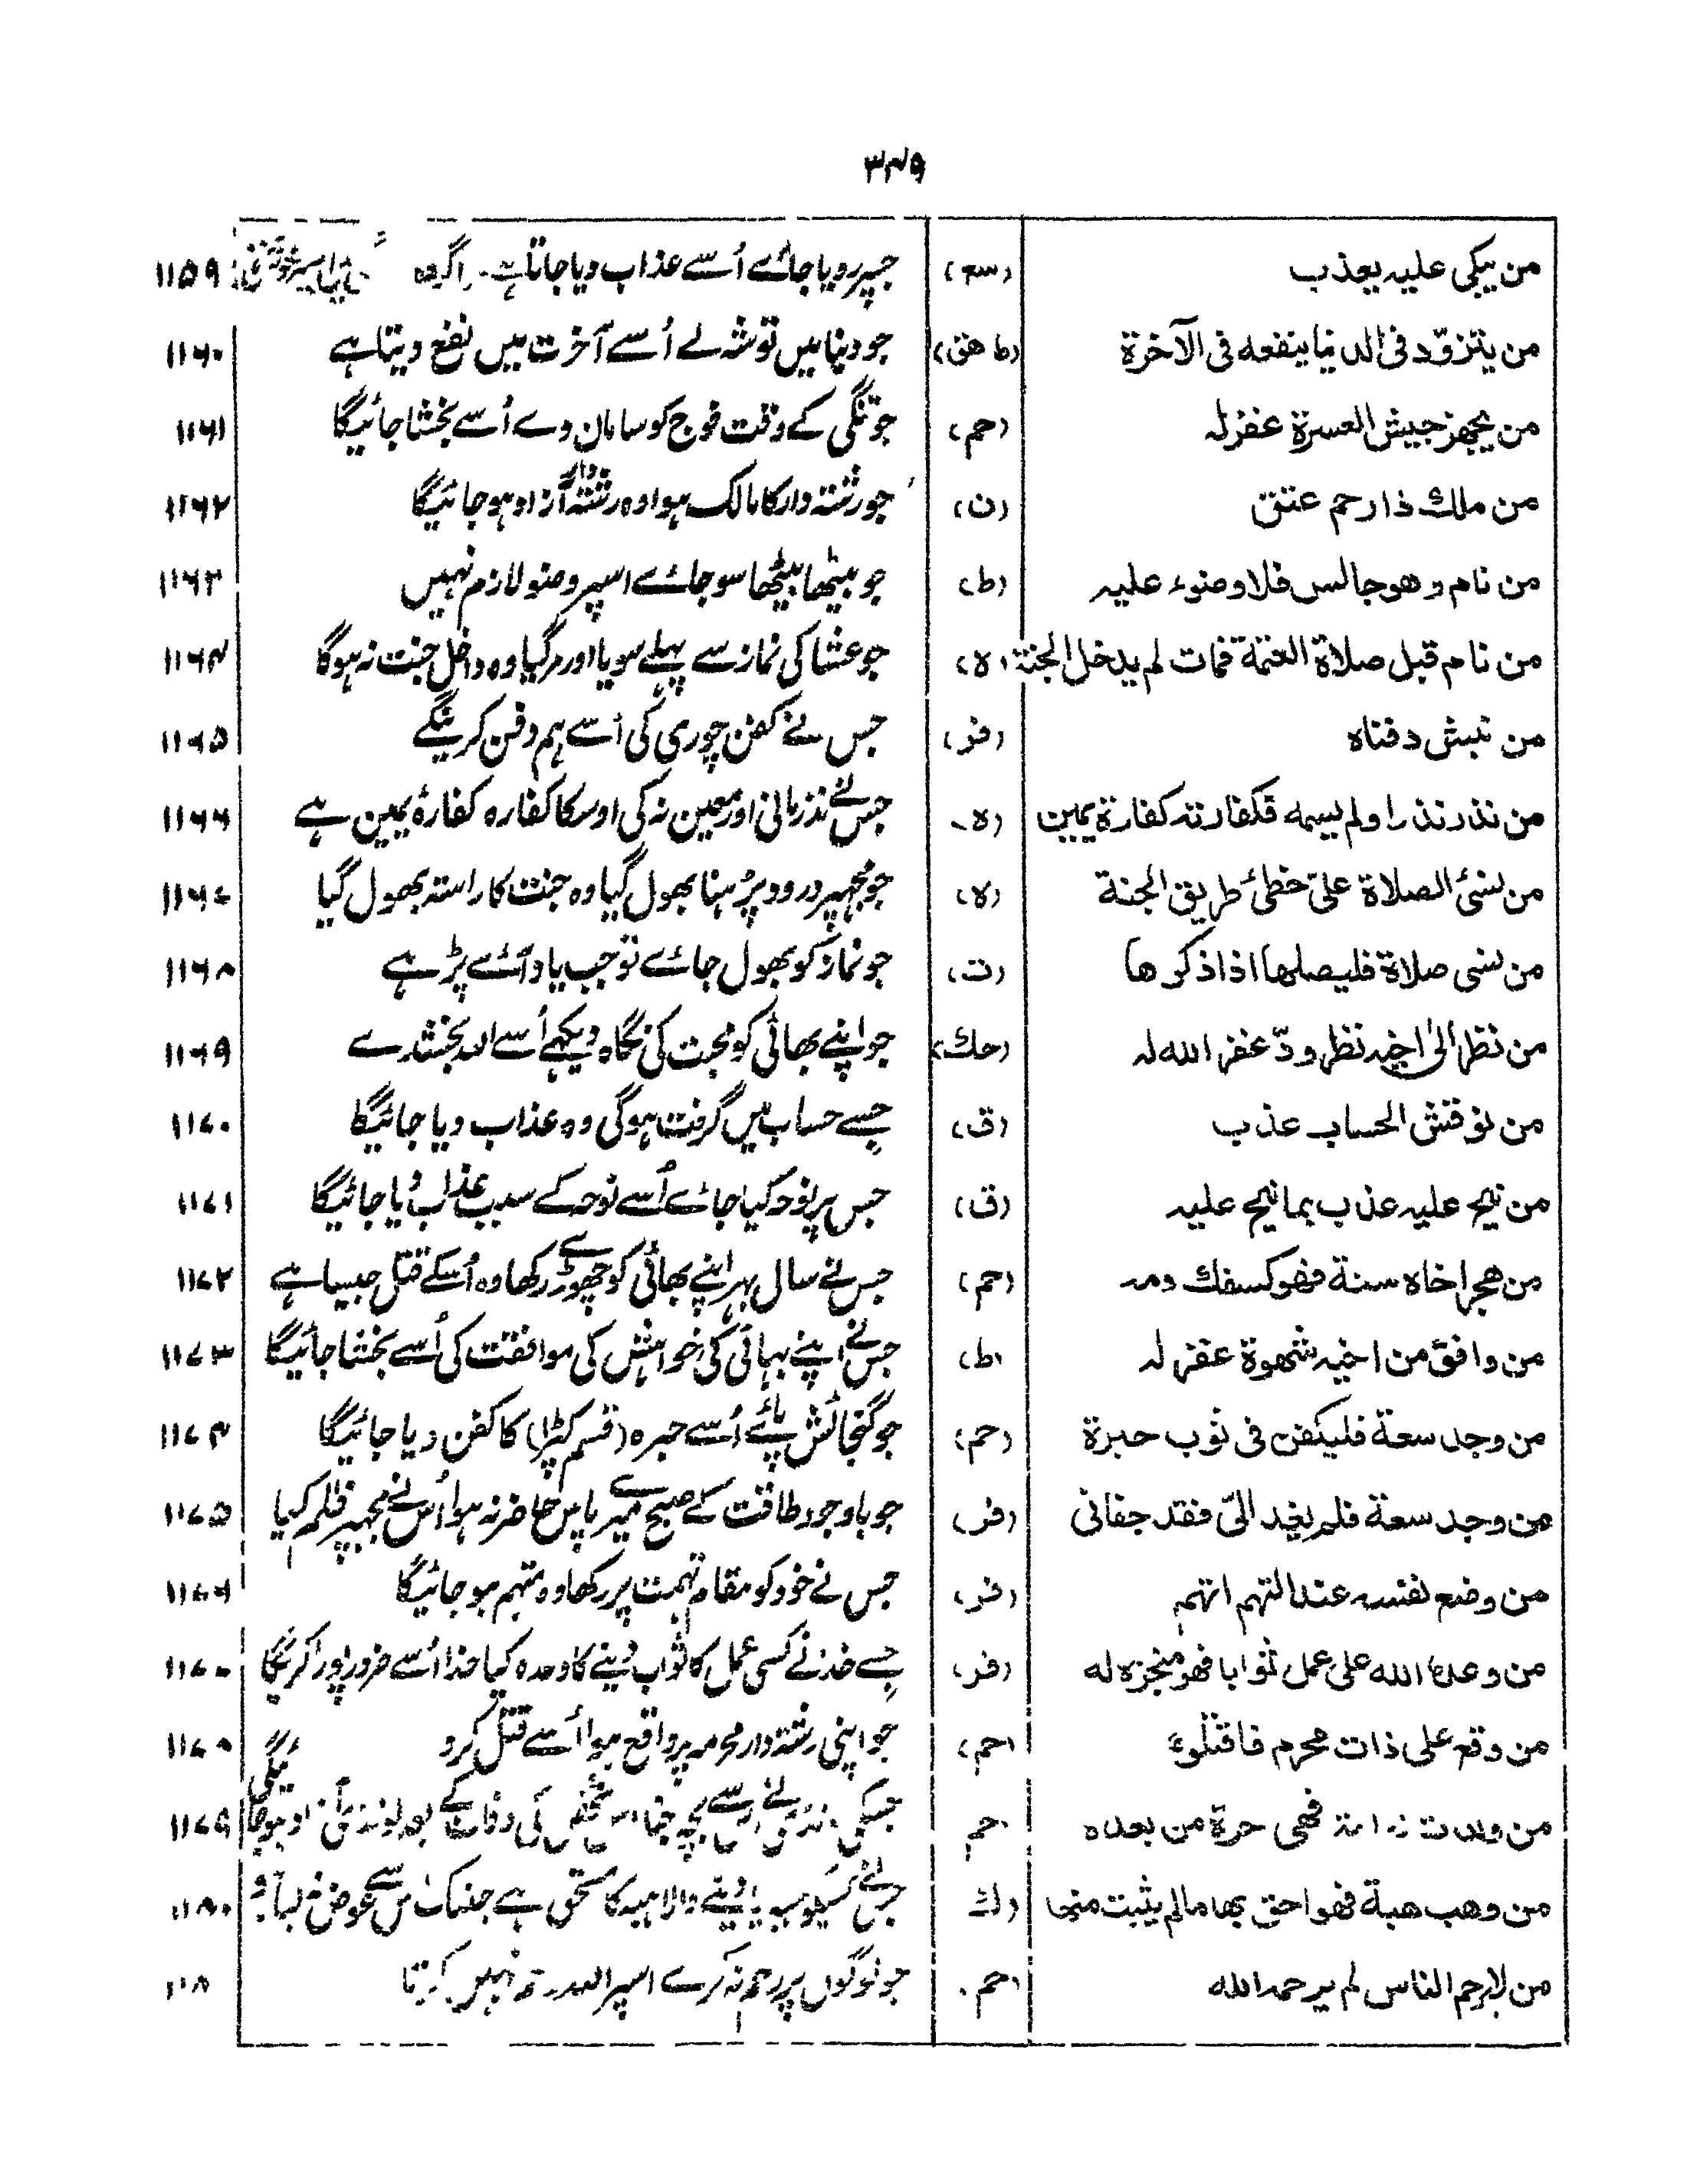 ۳۴۹
من يبكى عليه يعذب (سع) جسپر رویا جائے اُسے عذاب دیا جاتا ہے۔ اگر وہ ۱۱۵۹
من يتزوّد فى الدنيا ينفعه فى الآخرة (ط هق) جو دنیا میں توشہ لے اُسے آخرت میں نفع دیتا ہے ۱۱۶۰
من يجهز جيش العسرة غفر له (حم) جو تنگی کے وقت فوج کو سامان دے اُسے بخشا جائیگا ۱۱۶۱
من ملك ذا رحم عتق (ن) جو رشتہ دار کا مالک ہوا وہ رشتہ دار آزاد ہو جائیگا ۱۱۶۲
من نام وهو جالس فلا وضوء عليه (ط) جو بیٹھا بیٹھا سو جائے اسپر وضو لازم نہیں ۱۱۶۳
من نام قبل صلاة العتمة فمات لم يدخل الجنة (ه) جو عشا کی نماز سے پہلے سویا اور مرگیا وہ داخل جنت نہ ہوگا ۱۱۶۴
من نبش دفناه (فر) جس نے کفن چوری کی اُسے ہم دفن کرینگے ۱۱۶۵
من نذر نذرا ولم يسمه فكفارته كفارة يمين (ه) جس نے نذر مانی اور معین نہ کی اوسکا کفارہ کفارۂ یمین ہے ۱۱۶۶
من نسئ الصلاة علىّ خطئ طريق الجنة (ه) جو مجہپر درود پڑہنا بھول گیا وہ جنت کا راستہ بھول گیا ۱۱۶۷
من نسى صلاة فليصلها اذا ذكرها (ت) جو نماز کو بھول جائے تو جب یاد آئے پڑہے ۱۱۶۸
من نظر الى اخيه نظر ودّ غفر الله له (حك) جو اپنے بھائی کو محبت کی نگاہ دیکہے اُسے اللہ بخشدے ۱۱۶۹
من نوقش الحساب عذب (ق) جسے حساب میں گرفت ہوگی وہ عذاب دیا جائیگا ۱۱۷۰
من نيح عليه عذب بما نيح عليه (ق) جس پر نوحہ کیا جائے اُسے نوحہ کے سبب عذاب دیا جائیگا ۱۱۷۱
من هجر اخاه سنة فهو كسفك دمه (حم) جس نے سال بہر اپنے بھائی کو چھوڑے رکھا وہ اُسکے قتل جیسا ہے ۱۱۷۲
من وافق من اخيه شهوة غفر له (ط) جس نے اپنے بہائی کی خواہش کی موافقت کی اُسے بخشا جائیگا ۱۱۷۳
من وجد سعة فليكفن فى ثوب حبرة (حم) جو گنجائش پائے اُسے حبرہ (قسم کپڑا) کا کفن دیا جائیگا ۱۱۷۴
من وجد سعة فلم يغد الىّ فقد جفانى (فر) جو باوجود طاقت کے صبح میرے پاس حاضر نہ ہوا اُس نے مجہپر ظلم کیا ۱۱۷۵
من وضع نفسه عند التهم اتهم (فر) جس نے خود کو مقام تہمت پر رکھا وہ متہم ہو جائیگا ۱۱۷۶
من وعده الله على عمل ثوابا فهو منجزه له (فر) جسے خدا نے کسی عمل کا ثواب دینے کا وعدہ کیا خدا اُسے ضرور پورا کریگا ۱۱۷۷
من وقع على ذات محرم فاقتلوه (حم) جو اپنی رشتہ دار محرمہ پر واقع ہوا اُسے قتل کرو ۱۱۷۸
من ولدت امة فهى حرة من بعده حم بچہ جنا اس شخص کی وفات کے بعد لونڈی آزاد ہو جائیگی ۱۱۷۹
من وهب هبة فهو احق بها مالم يثبت منها (ك) دینے والا ہبہ کا مستحق ہے جبتک اس سے عوض نہ لیا ہو ۱۱۸۰
من لا يرحم الناس لم يرحمه الله (حم) جو لوگوں پر رحم نہ کرے اسپر اللہ رحم نہیں کرتا ۱۱۸